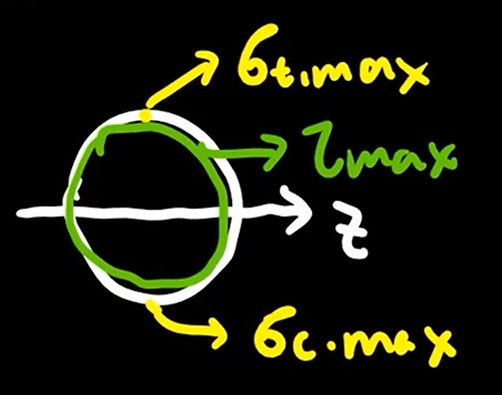 σt,max
τmax
z
σc.max